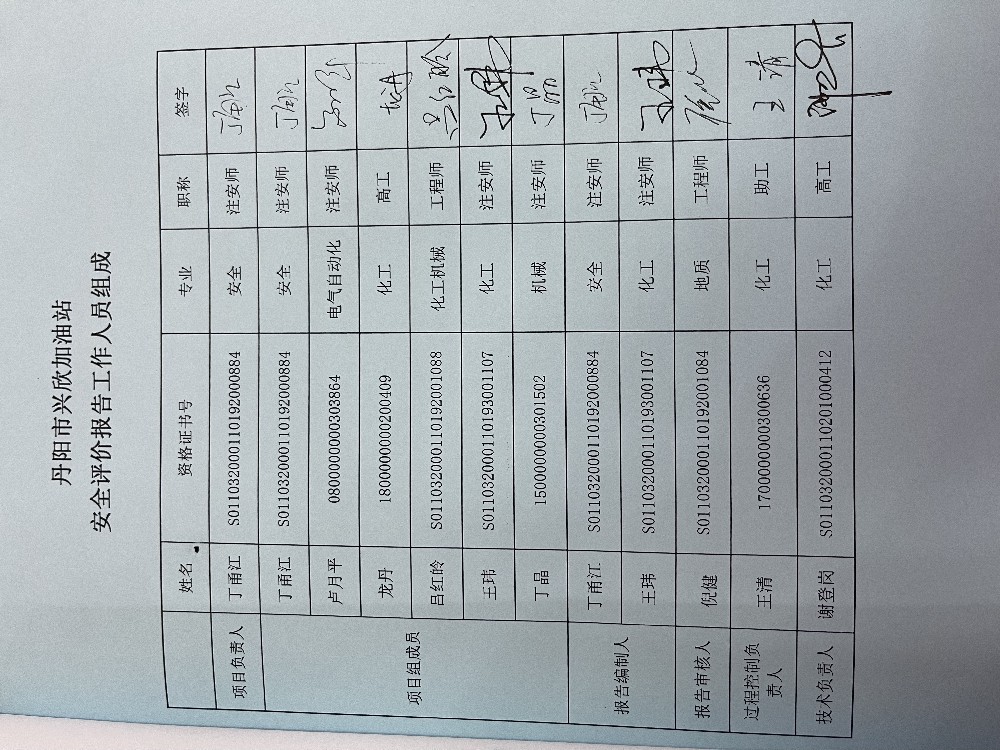 丹阳市兴欣加油站
安全评价报告工作人员组成
姓名 资格证书号 专业 职称 签字
项目负责人 丁甬江 S011032000110192000884 安全 注安师 丁甬江
项目组成员 丁甬江 S011032000110192000884 安全 注安师 丁甬江
卢月平 0800000000303864 电气自动化 注安师
龙丹 1800000000200409 化工 高工 龙丹
吕红昤 S011032000110192001088 化工机械 工程师 吕红昤
王玮 S011032000110193001107 化工 注安师 王玮
丁晶 1500000000301502 机械 注安师 丁晶
报告编制人 丁甬江 S011032000110192000884 安全 注安师 丁甬江
王玮 S011032000110193001107 化工 注安师 王玮
报告审核人 倪健 S011032000110192001084 地质 工程师
过程控制负
责人 王清 1700000000300636 化工 助工 王清
技术负责人 谢登岗 S011032000110201000412 化工 高工